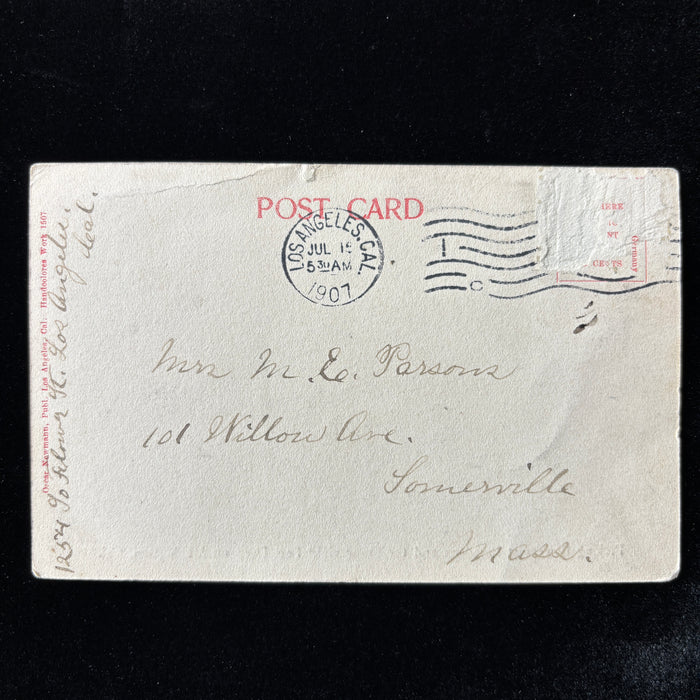 POST CARD
LOS ANGELES, CAL.
JUL 15
5 30 AM
1907
HERE
NT
CENTS
Germany
Mrs M. E. Parsons
101 Willow Ave.
Somerville
Mass.
Oscar Newmann, Publ. Los Angeles, Cal. Handcolores Work 1507
1254 So Flower St. Los Angeles.
Cal.